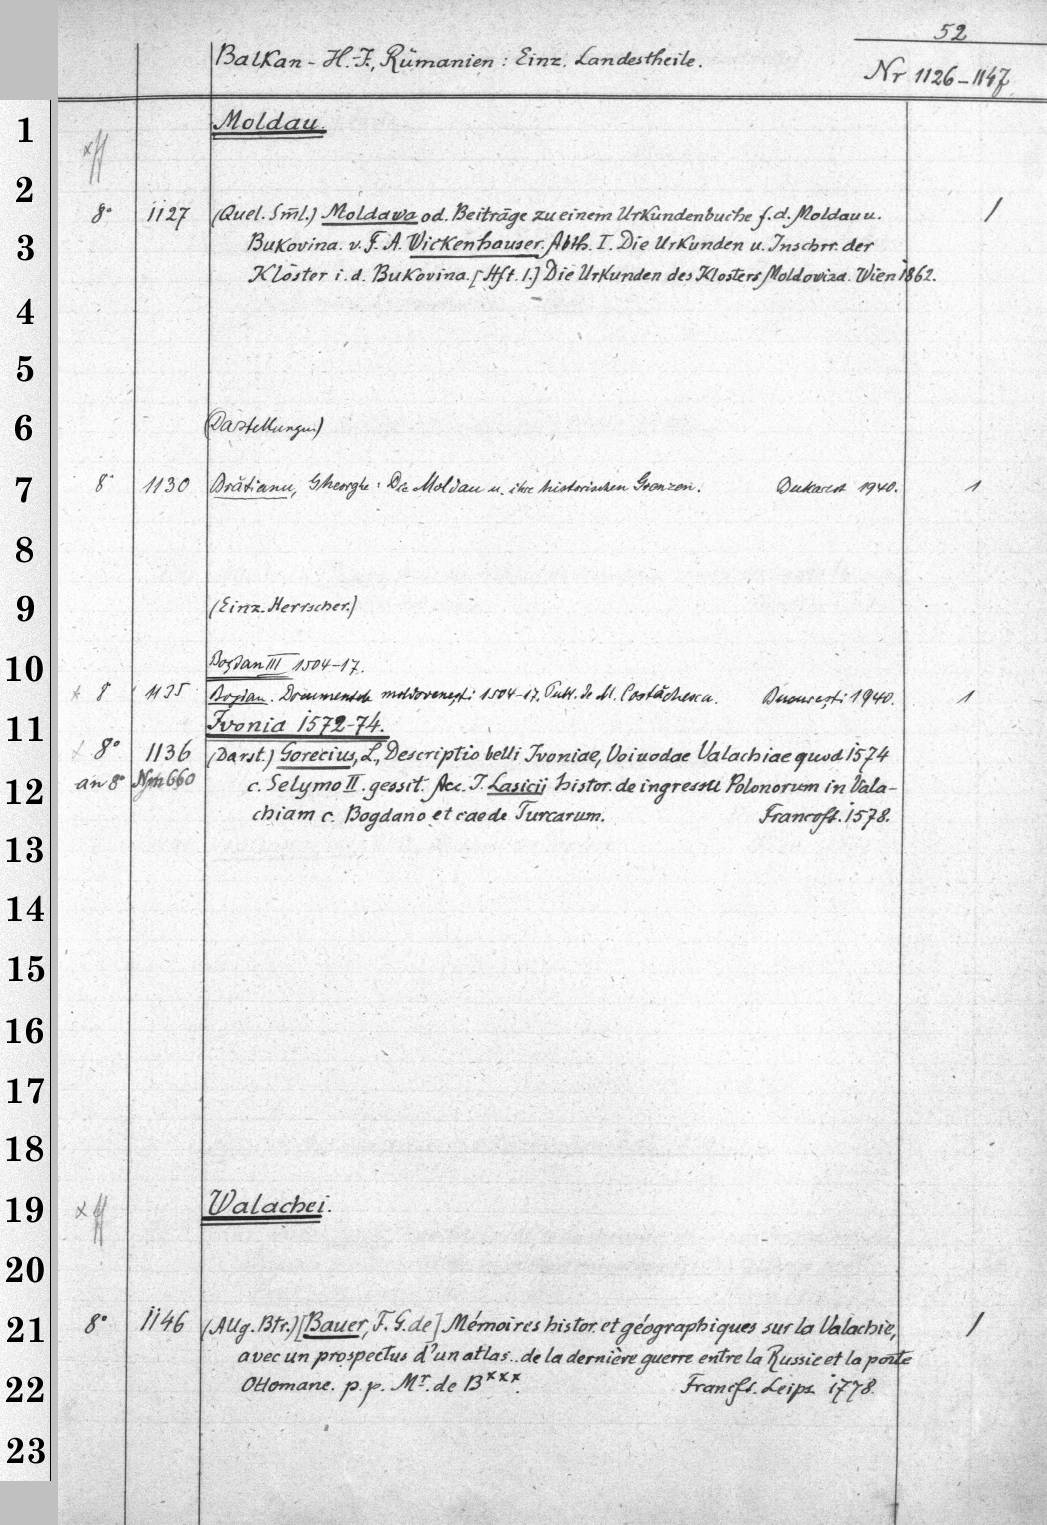 52
Balkan - H.-J., Rümanien : Einz. Landestheile.
Nr 1126-1147
1
Moldau.
2
8° 1127 (Quel. Sml.) Moldawa od. Beiträge zu einem Urkundenbuche f. d. Moldau u. 1
3 Bukovina. v. F. A. Wickenhauser. Abth. I. Die Urkunden u. Inschrr. der
Klöster i. d. Bukovina. [Hft. 1.] Die Urkunden des Klosters Moldoviza. Wien 1862.
4
5
6 (Darstellungen)
7 8° 1130 Brătianu, Gheorghe : Die Moldau u. ihre historischen Grenzen. Bukarest 1940. 1
8
9 (Einz. Herrscher.)
10 Bogdan III 1504-17.
8 1135 Bogdan. Documentele moldoveneşti 1504-17. Publ. de M. Costăchescu. Bucureşti 1940. 1
11 Ivonia 1572-74.
8° 1136 (Darst.) Gorecius, L., Descriptio belli Ivoniae, Voivodae Valachiae quod 1574
12 an 8° Nm 660 c. Selymo II. gessit. Acc. J. Lasicii histor. de ingressu Polonorum in Vala-
chiam c. Bogdano et caede Turcarum. Francoft. 1578.
13
14
15
16
17
18
19 Walachei.
20
21 8° 1146 (Allg. Btr.) [Bauer, F. G. de] Mémoires histor. et géographiques sur la Valachie, 1
avec un prospectus d'un atlas.. de la dernière guerre entre la Russie et la porte
22 Ottomane. p. p. Mr. de B xxx. Francft. Leipz 1778.
23